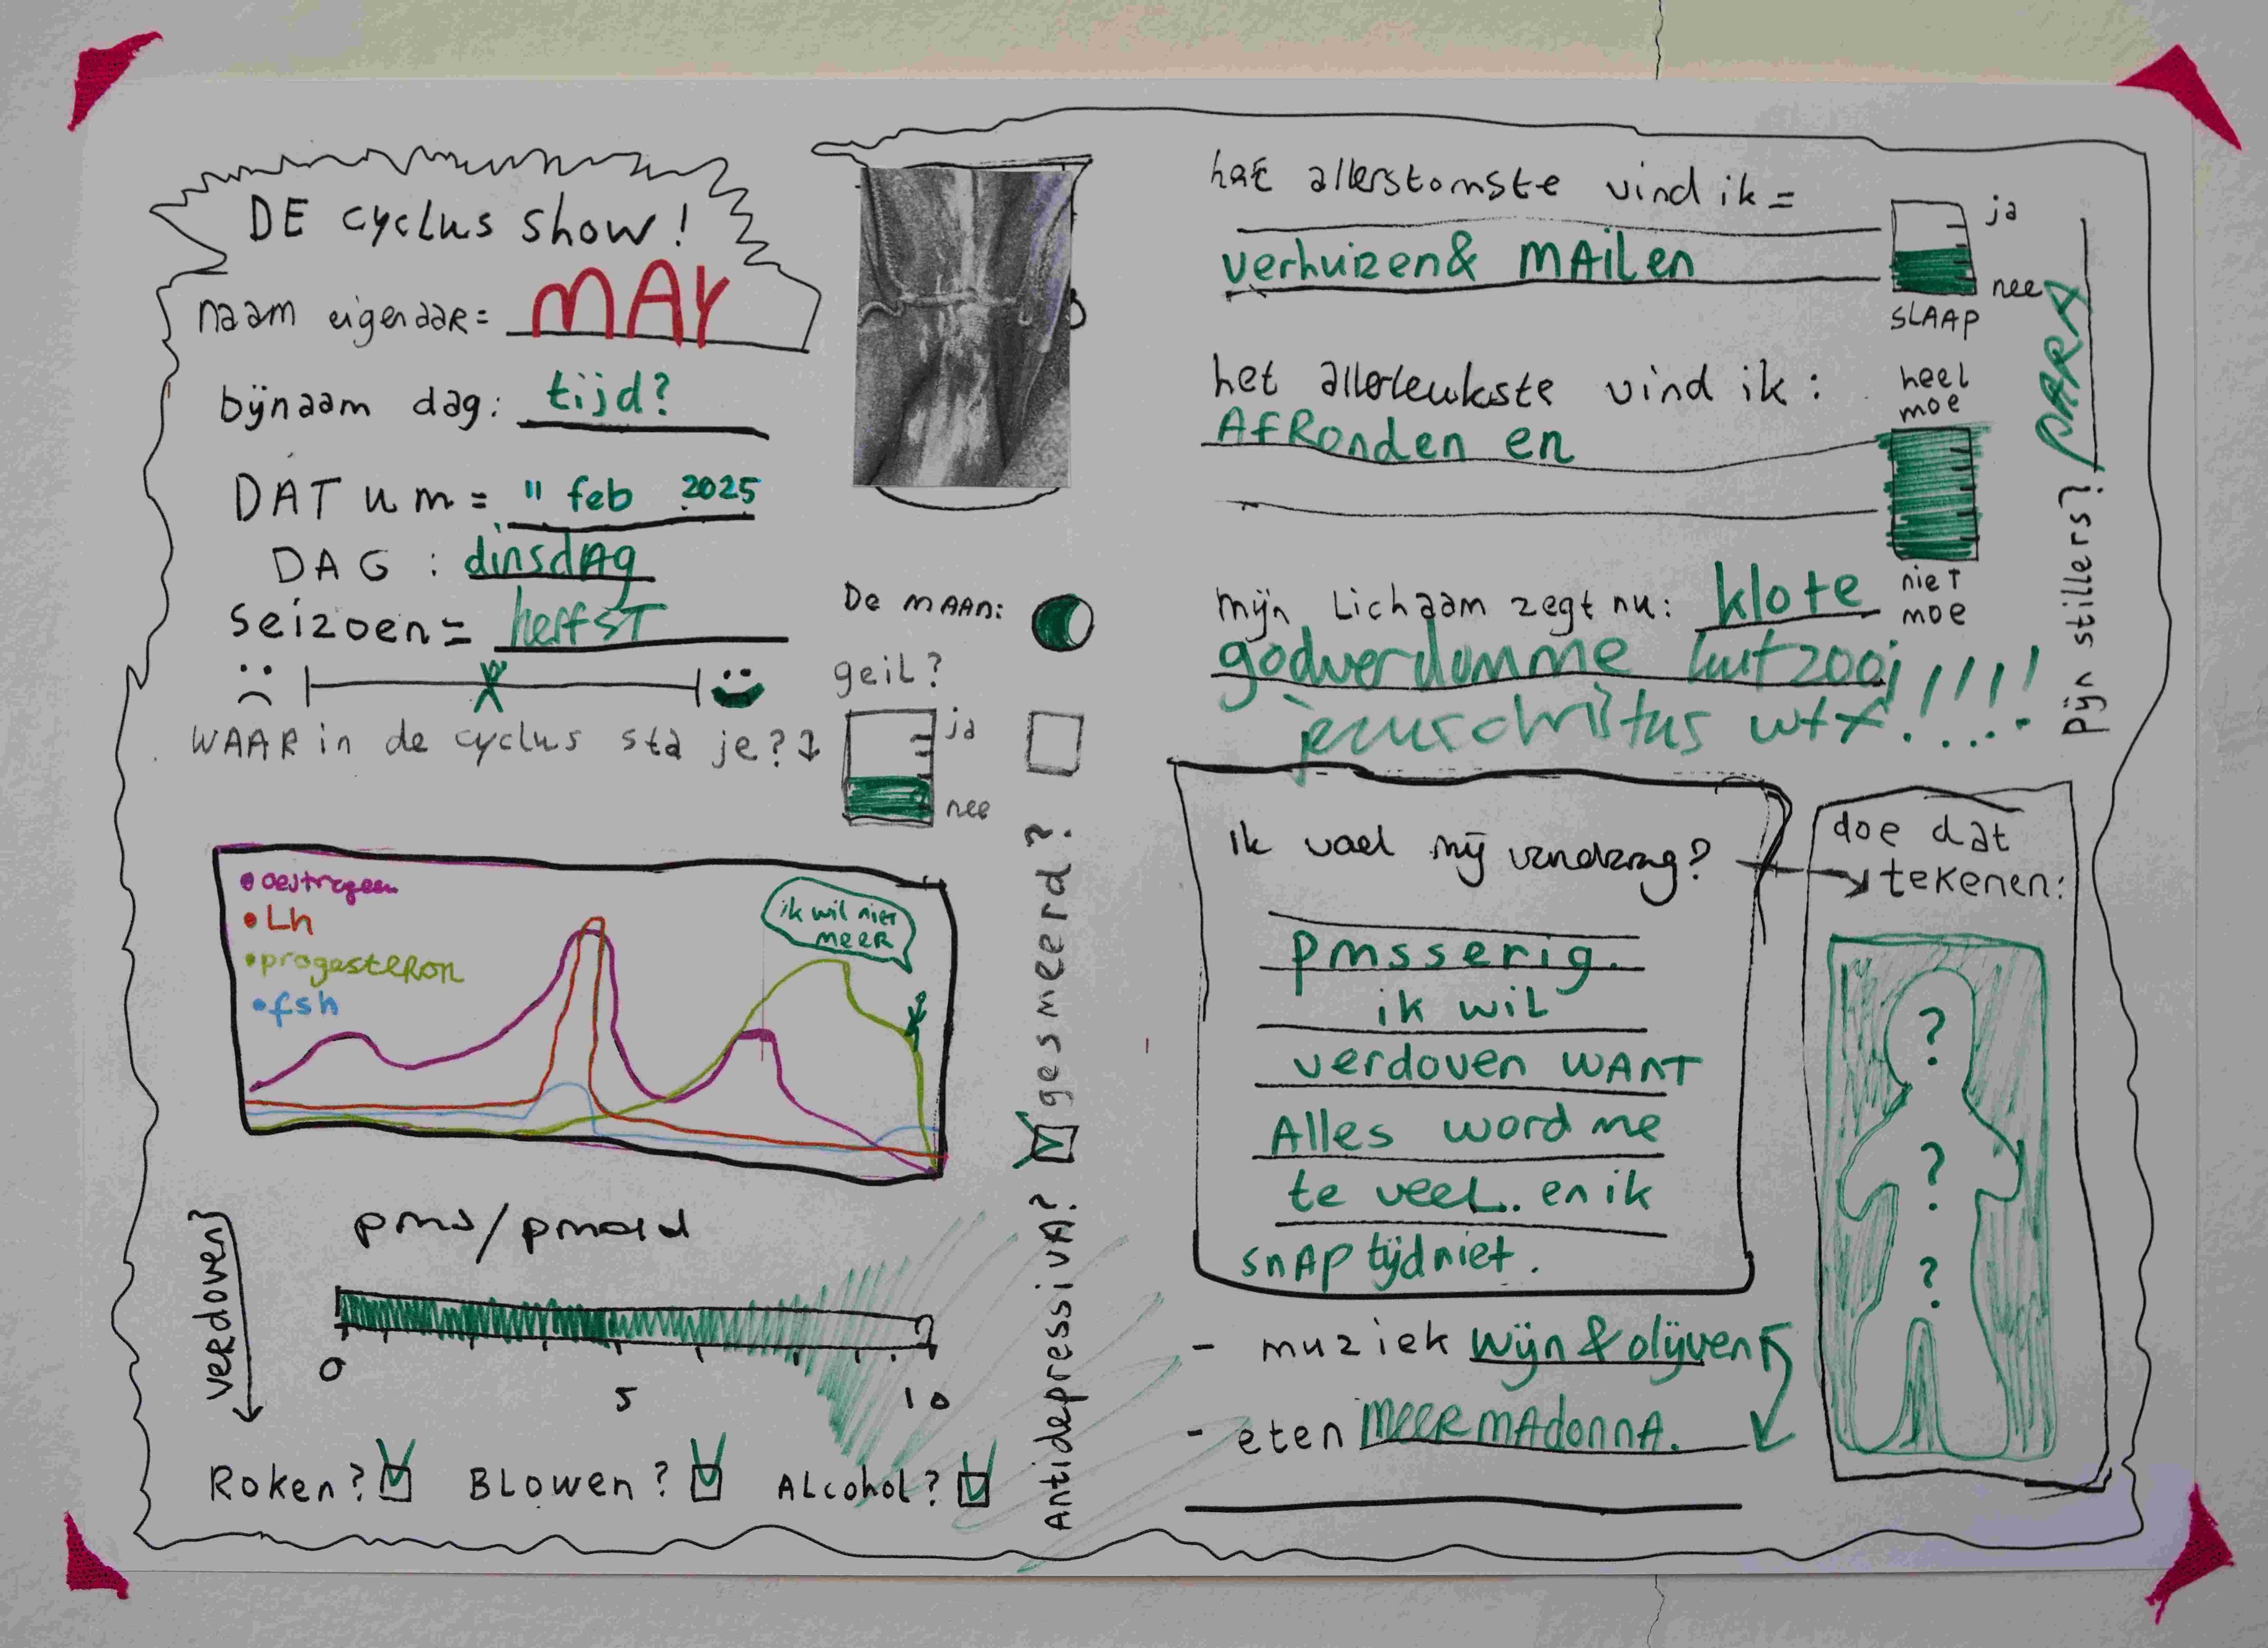 DE cyclus show!
naam eigenaar= MAY
bijnaam dag: tijd?
DATum= 11 feb 2025
DAG: dinsdag
seizoen= herfst
WAAR in de cyclus sta je?
De MAAN:
geil?
ja
nee
oestrogeen
Lh
progesteron
fsh
ik wil niet
MEER
gesmeerd?
Antidepressiva?
verdoven?
pms/pmdd
0
5
10
Roken? Blowen? Alcohol?
het allerstomste vind ik=
verhuizen & MAILen
ja
nee
SLAAP
het allerleukste vind ik:
Afronden en
heel
moe
niet
moe
pijnstillers? PARA
mijn Lichaam zegt nu: klote
godverdomme kutzooi!!!!
wtf!....
ik voel mij vandaag?
pmsserig.
ik wil
verdoven WANT
Alles word me
te veel. en ik
snap tijd niet.
doe dat
tekenen:
?
?
?
- muziek wijn & olijven
- eten MEER MAdonnA.